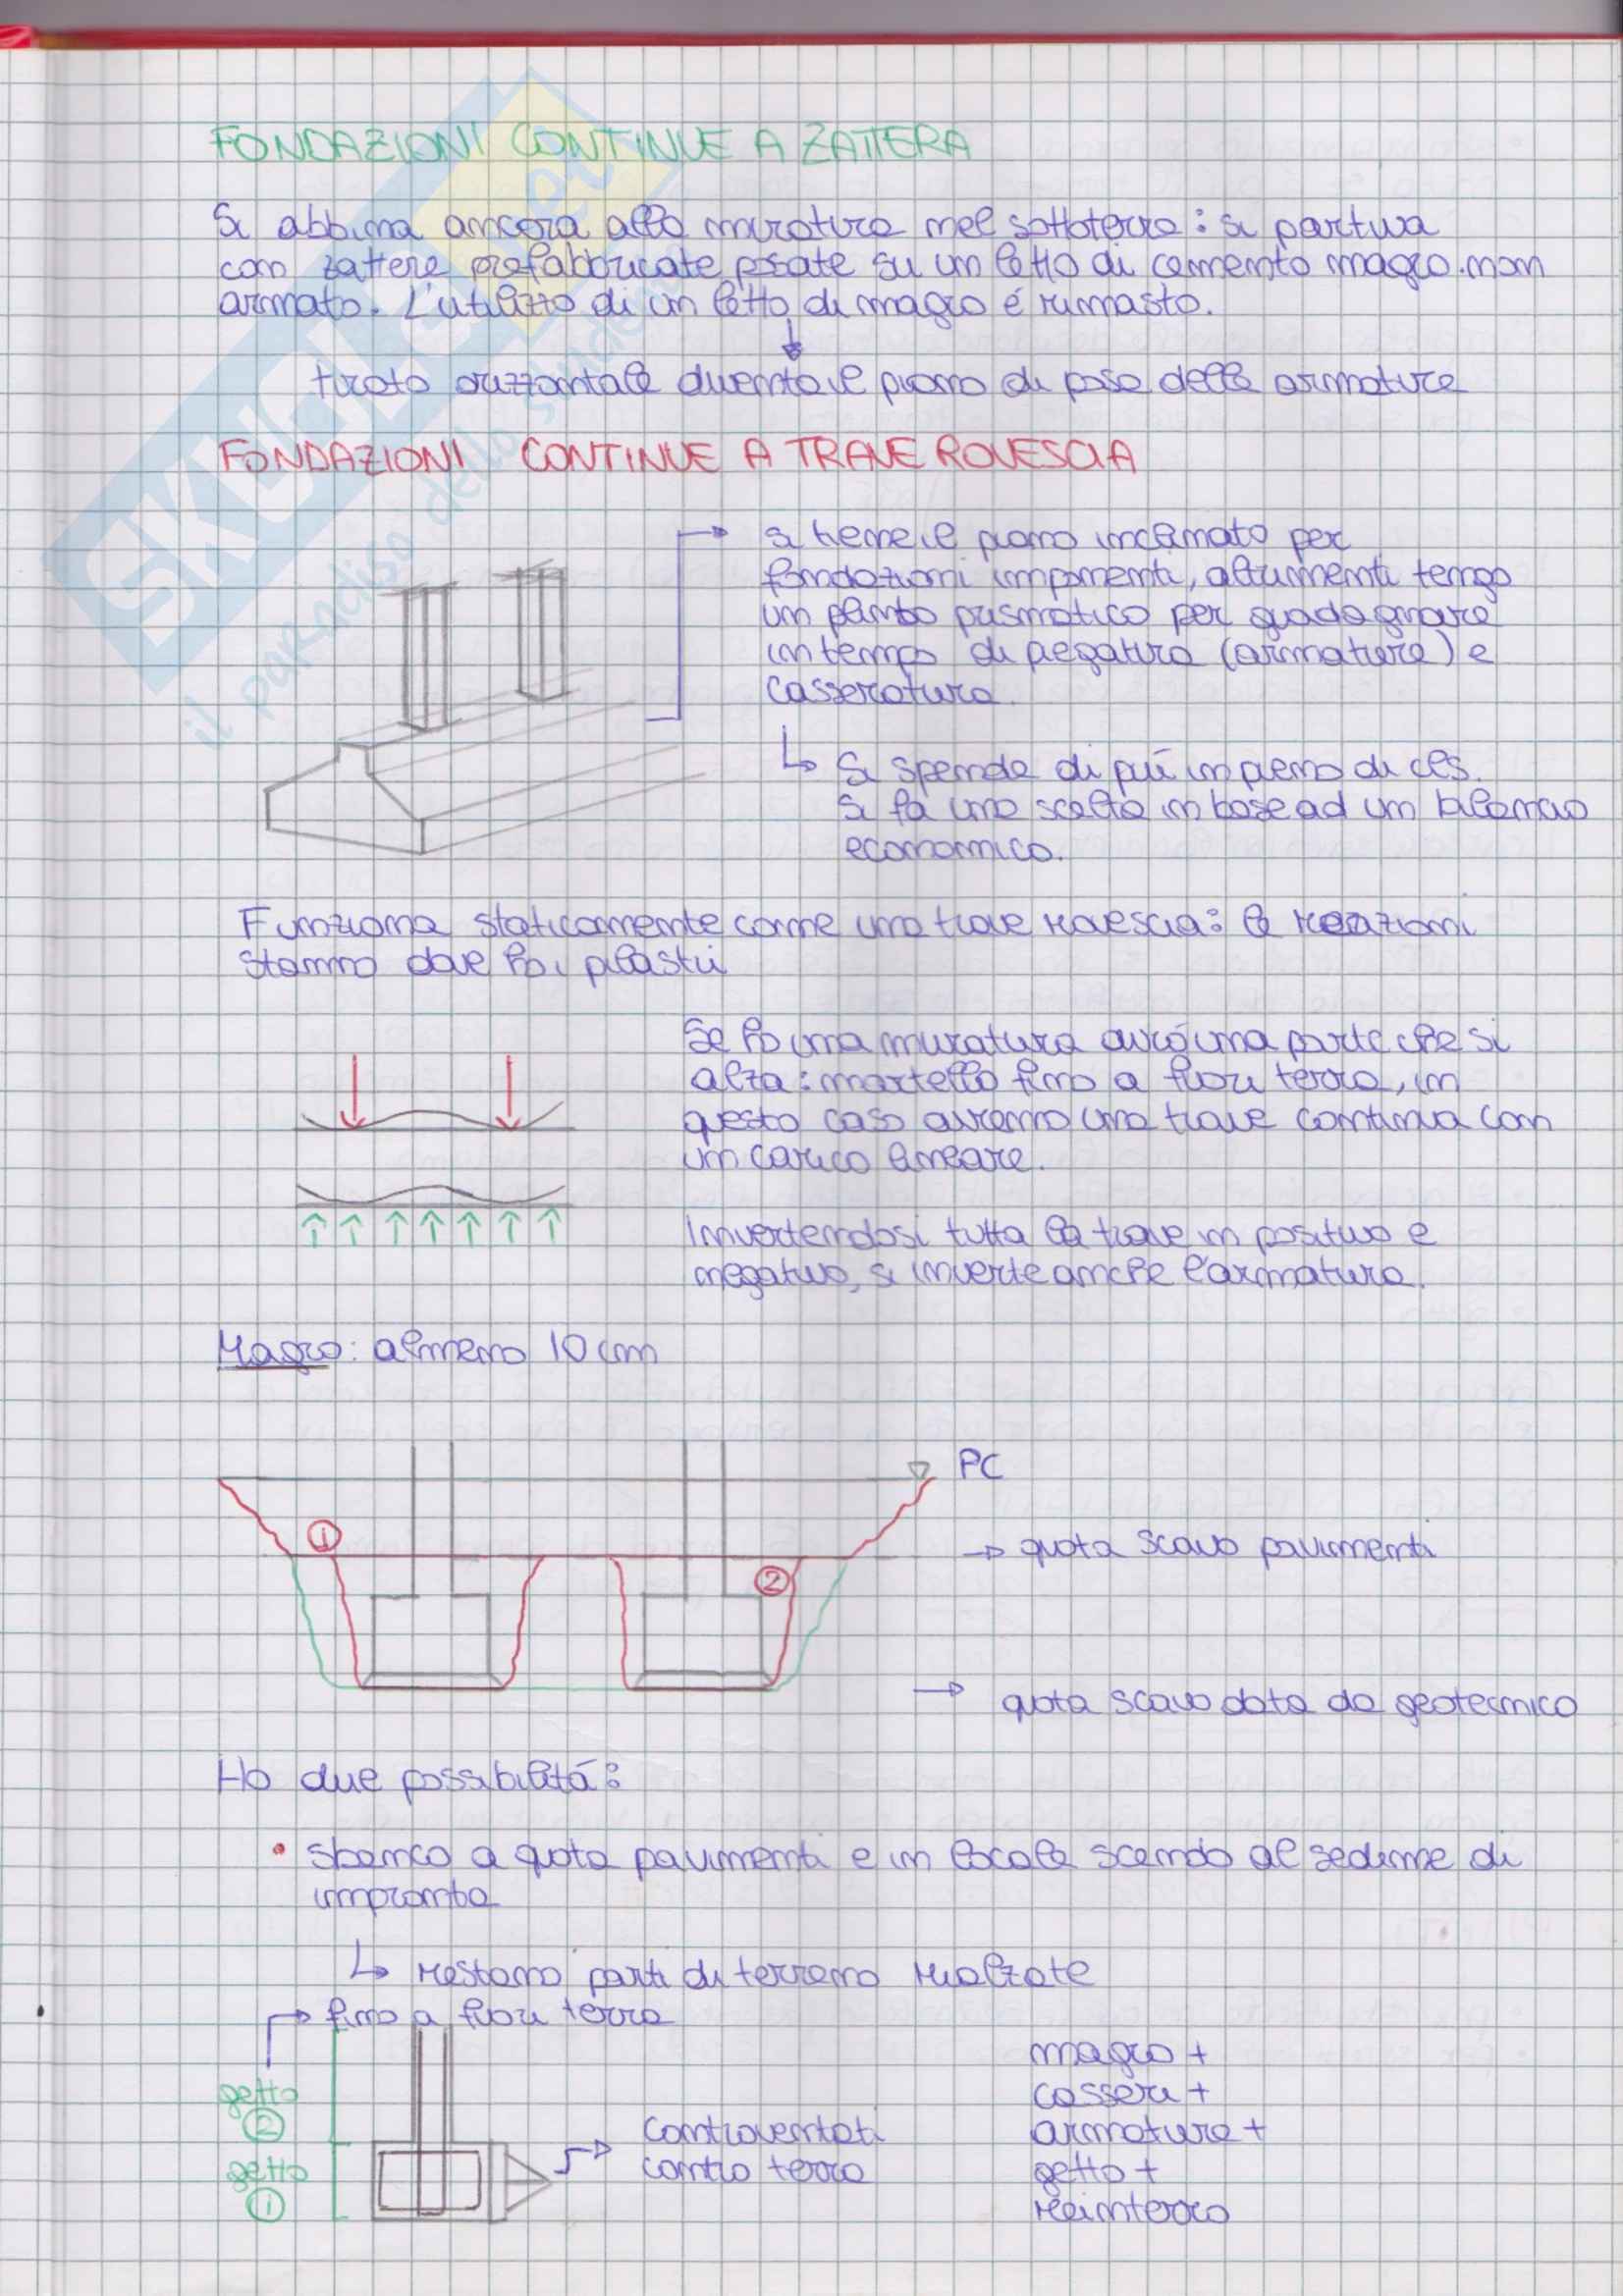 FONDAZIONI CONTINUE A ZATTERA
Si abbina ancora alla muratura nel sottoterra: si partiva
con zattere prefabbricate posate su un letto di cemento magro non
armato. L'utilizzo di un letto di magro é rimasto.
tirato orizzontale diventa il piano di posa delle armature
FONDAZIONI CONTINUE A TRAVE ROVESCIA
si tiene il piano inclinato per
fondazioni imponenti, altrimenti tengo
un plinto prismatico per guadagnare
in tempo di piegatura (armature) e
casseratura.
Si spende di piú in pieno di cls.
Si fa una scelta in base ad un bilancio
economico.
Funziona staticamente come una trave rovescia: le reazioni
stanno dove ho i pilastri
Se ho una muratura avró una parte che si
alza: martello fino a fuori terra, in
questo caso avremo una trave continua con
un carico lineare.
Invertendosi tutta la trave in positivo e
negativo, si inverte anche l'armatura.
Magro: almeno 10 cm
PC
1
quota scavo pavimenti
2
quota scavo data da geotecnico
Ho due possibilitá:
• sbanco a quota pavimenti e in locale scendo al sedime di
impronta
restano parti di terreno rialzate
fino a fuori terra
getto
2
getto
1
Controventati
contro terra
magro +
casseri +
armatura +
getto +
reinterro
SKUOLA.net
il paradiso dello studente